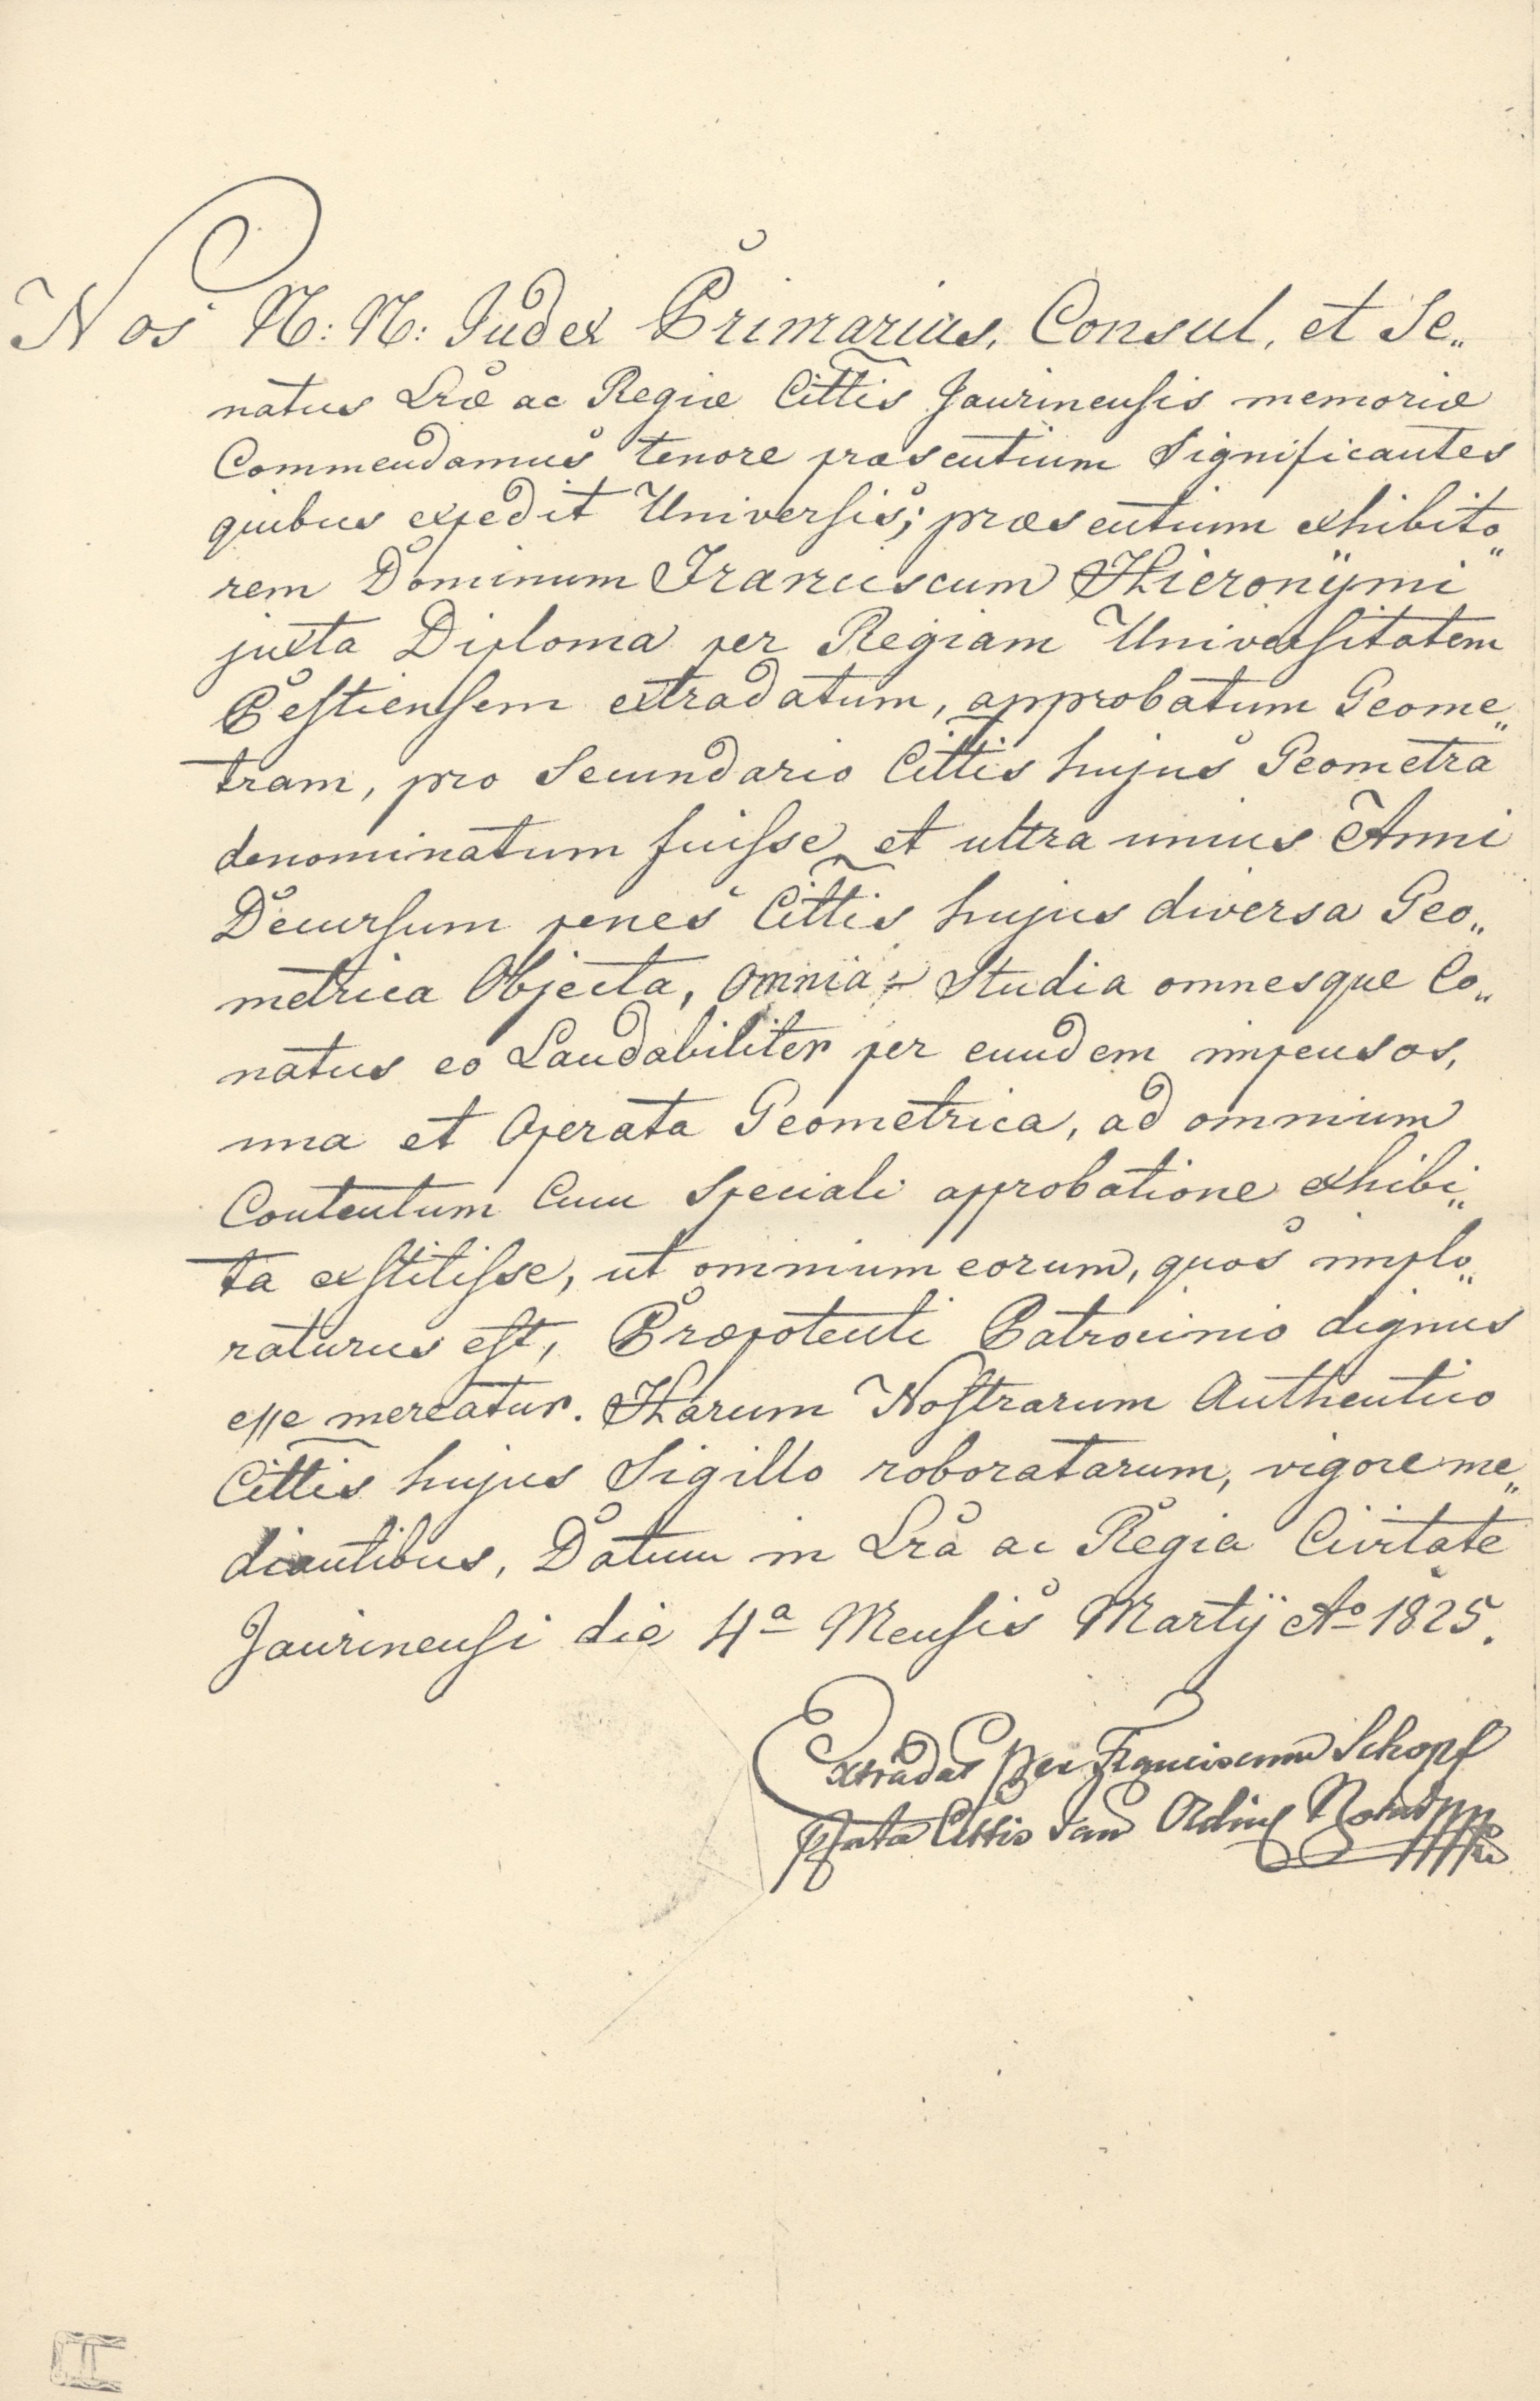 Nos N: N: Judex Primarius, Consul, et Se„
natus Lræ ac Regiæ Cittis Jaurinensis memoriæ
Commendamus tenore præsentium Significantes
quibus expedit Universis; præsentium exhibito„
rem Dominum Franciscum Hieronÿmi
juxta Diploma per Regiam Universitatem
Pestiensem extradatum, approbatum Geome„
tram, pro Secundario Cittis hujus Geometra
denominatum fuisse et ultra unius Anni
Decursum penes Cittis hujus diversa Geo„
metrica Objecta, omnia Studia omnesque Co„
natus eo Laudabiliter per eundem impensos,
una et Operata Geometrica, ad omnium
Contentum Cum Speciali approbatione exhibi„
ta exstitisse, ut omnium eorum, quos implo„
raturus est, Præpotenti Patrocinio dignus
esse mereatur. Harum Nostrarum Authentico
Cittis hujus Sigillo roboratarum, vigore me„
diantibus, Datum in Lra ac Regia Civitate
Jaurinensi die 4a Mensis Martÿ Ao 1825.
Extradat per Franciscum Schopf
Cittis Jaur Ordin Notar